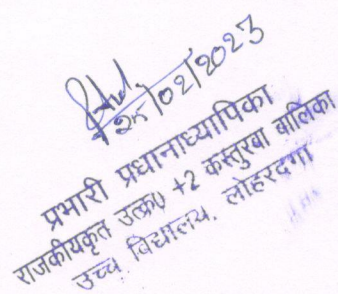 25/02/2023
प्रभारी प्रधानाध्यापिका
राजकीयकृत उत्क्र० +2 कस्तुरबा बालिका
उच्च विद्यालय, लोहरदगा